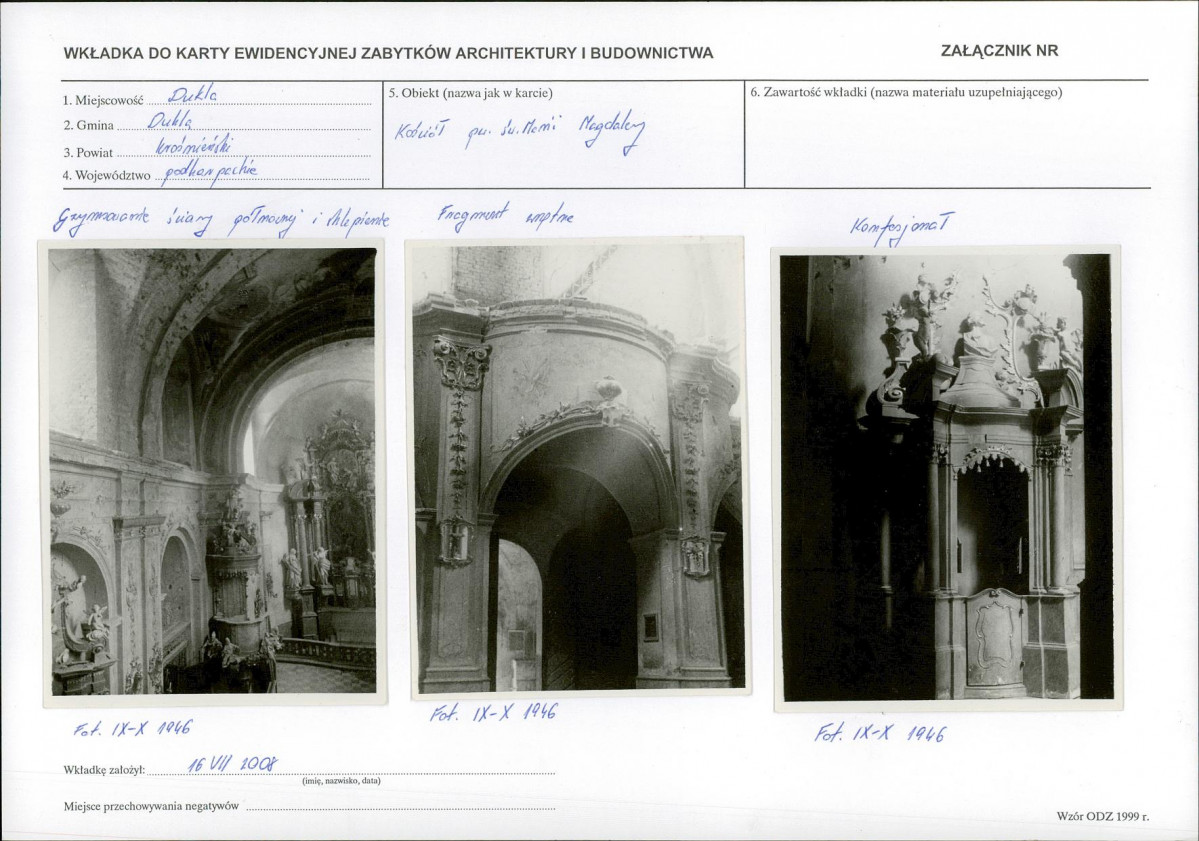 WKŁADKA DO KARTY EWIDENCYJNEJ ZABYTKÓW ARCHITEKTURY I BUDOWNICTWA
ZAŁĄCZNIK NR
1. Miejscowość Dukla
2. Gmina Dukla
3. Powiat krośnieński
4. Województwo podkarpackie
5. Obiekt (nazwa jak w karcie)
Kościół pw. św. Marii Magdaleny
6. Zawartość wkładki (nazwa materiału uzupełniającego)
ściany północnej i sklepienie
Fragment wnętrza
Konfesjonał
Fot. IX-X 1946
Fot. IX-X 1946
Fot. IX-X 1946
Wkładkę założył: 16 VII 2008
(imię, nazwisko, data)
Miejsce przechowywania negatywów
Wzór ODZ 1999 r.